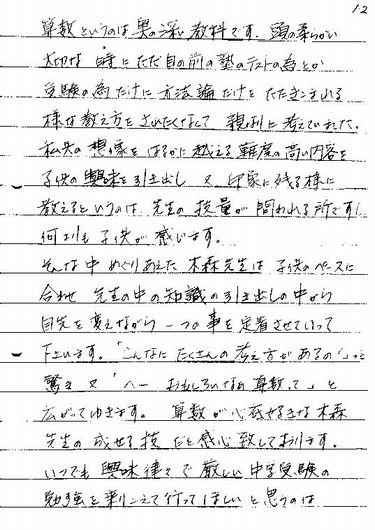 12
算数というのは奥の深い教科です。頭の柔らかい
大切な時にただ目の前の塾のテストの為とか
受験の為だけに方法論だけをたたきこまれる
様な教え方をされたくなくて 親身に考えていました。
私共の想像をはるかに越える難度の高い内容を
子供の興味を引き出し 又、印象に残る様に
教えるというのは 先生の技量が問われる所ですし
何よりも子供が感じます。
そんな中 めぐりあえた木森先生は 子供のペースに
合わせ 先生の中の知識の引き出しの中から
目先を変えながら 一つの事を定着させていって
下さいます。「こんなにたくさんの考え方があるの」っと
驚き又「へー おもしろいなぁ算数って」と
広がってゆきます。 算数が心底好きな木森
先生の成せる技だと感心致しております。
いつでも興味津々で厳しい中学受験の
勉強を乗りこえて行ってほしいと思うのは